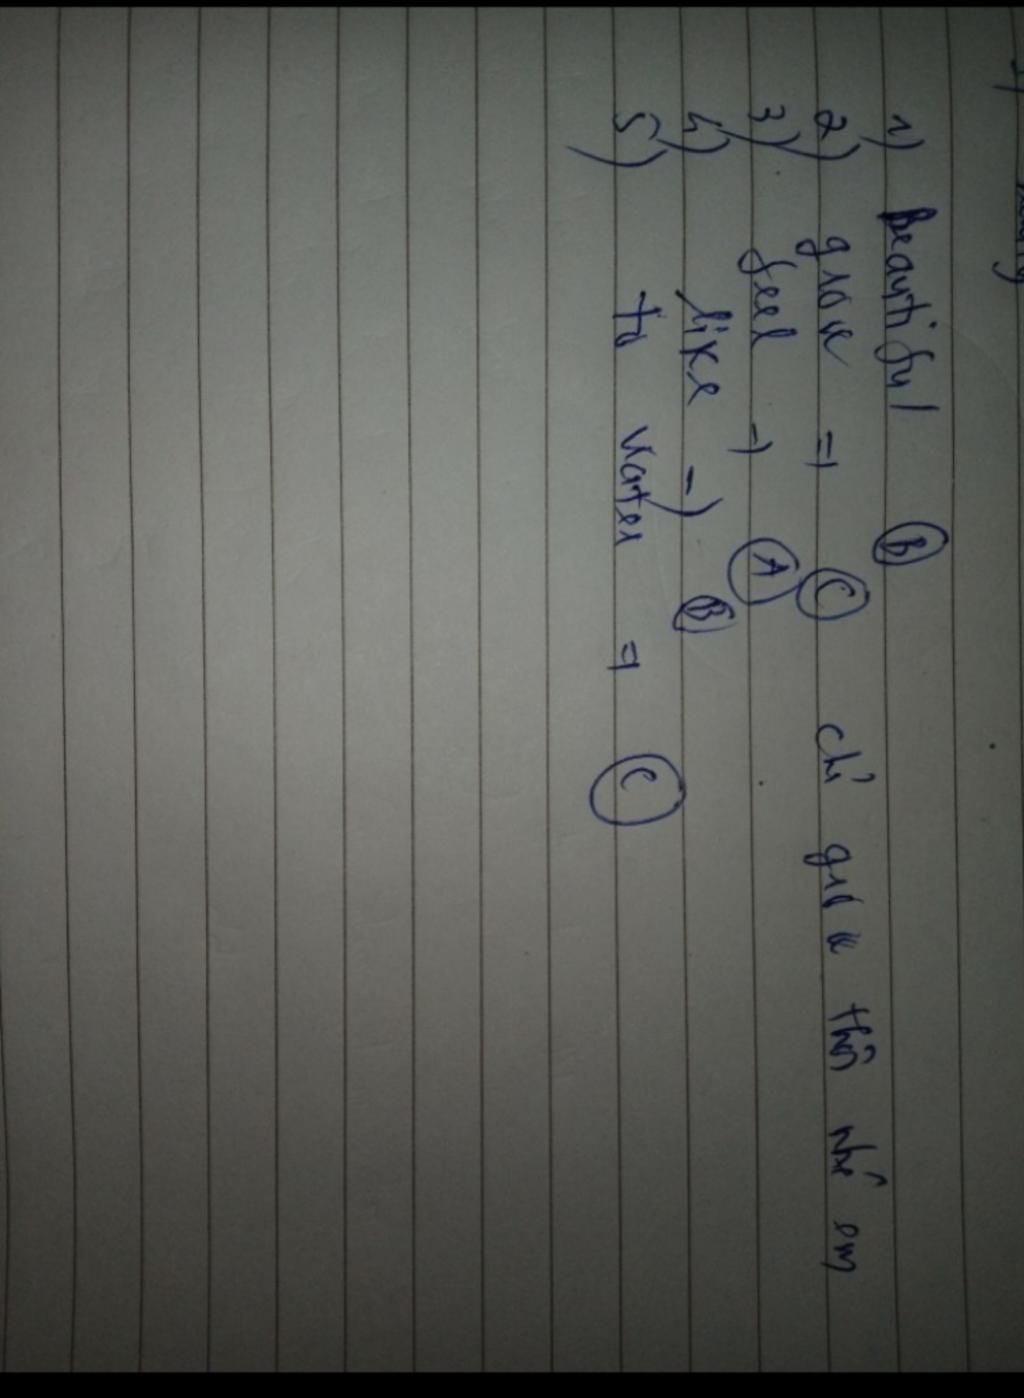 1) Beautiful B
2) grow => C chỉ grow thôi nhé em
3) feel -> A
4) like -> B
5) to water => C